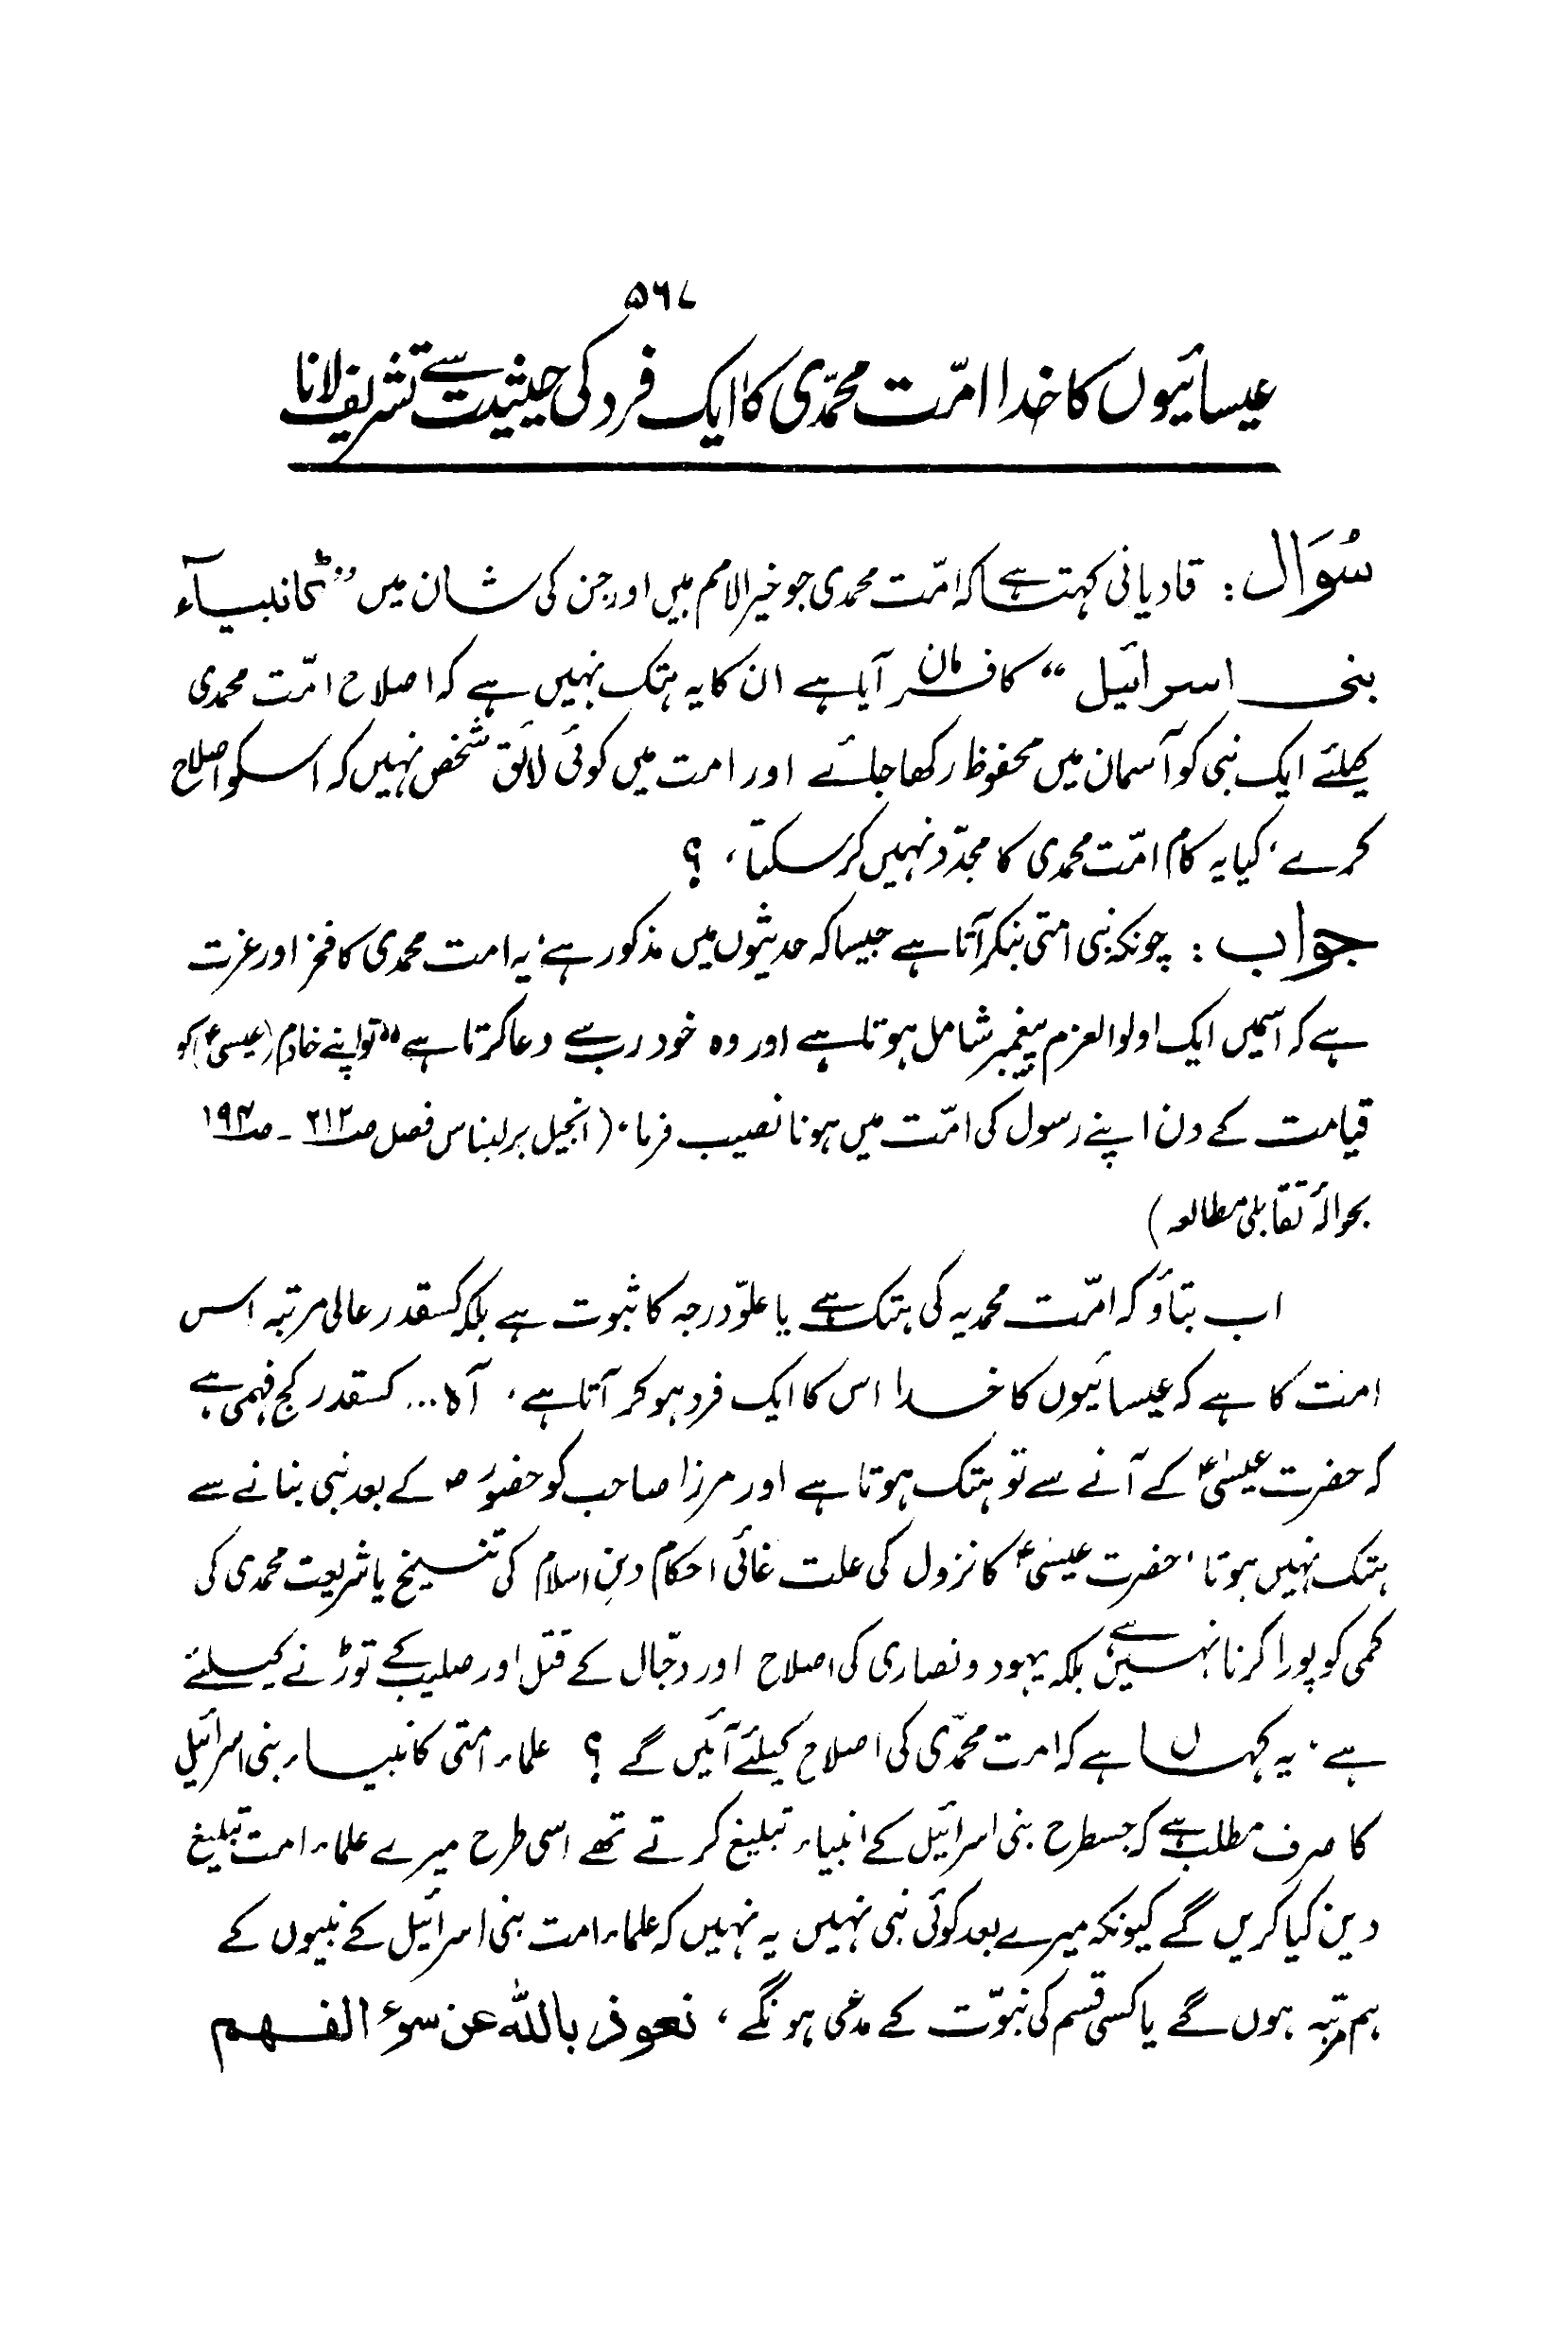 ۵۶۷
عیسائیوں کا خدا امّت محمّدی کا ایک فرد کی حیثیت سے تشریف لانا
سُوَال : قادیانی کہتا ہے کہ امّت محمدی جو خیر الامم ہیں اور جن کی شان میں ”کانبیآء
بنی اسرائیل“ کا فرمان آیا ہے ان کا یہ ہتک نہیں ہے کہ اصلاح امّت محمدی
کیلئے ایک نبی کو آسمان میں محفوظ رکھا جائے اور امت میں کوئی لائق شخص نہیں کہ اسکو اصلاح
کرے، کیا یہ کام امّت محمدی کا مجدّد نہیں کر سکتا، ؟
جواب : چونکہ نبی امتی بنکر آتا ہے جیسا کہ حدیثوں میں مذکور ہے، یہ امت محمدی کا فخر اور عزت
ہے کہ اسمیں ایک اولوالعزم پیغمبر شامل ہوتا ہے اور وہ خود رب سے دعا کرتا ہے ”تو اپنے خادم (عیسیٰؑ) کو
قیامت کے دن اپنے رسول کی امّت میں ہونا نصیب فرما، (انجیل برلبناس فصل ص۲۱۲ - ص۱۹۴
بحوالۂ تقابلی مطالعہ)
اب بتاؤ کہ امّت محمدیہ کی ہتک ہے یا علوّ درجہ کا ثبوت ہے بلکہ کسقدر عالی مرتبہ اس
امت کا ہے کہ عیسائیوں کا خدا اس کا ایک فرد ہو کر آتا ہے، آہ... کسقدر کج فہمی ہے
کہ حضرت عیسیٰؑ کے آنے سے تو ہتک ہوتا ہے اور مرزا صاحب کو حضورؐ کے بعد نبی بنانے سے
ہتک نہیں ہوتا، حضرت عیسیٰؑ کا نزول کی علت غائی احکام دینِ اسلام کی تنسیخ یا شریعت محمدی کی
کمی کو پورا کرنا نہیں ہے، بلکہ یہود و نصاری کی اصلاح اور دجّال کے قتل اور صلیب کے توڑنے کیلئے
ہے، یہ کہاں ہے کہ امت محمدّی کی اصلاح کیلئے آئیں گے ؟ علماء امتی کانبیاء بنی اسرائیل
کا صرف مطلب ہے کہ جسطرح بنی اسرائیل کے انبیاء تبلیغ کرتے تھے اسی طرح میرے علماء امت تبلیغ
دین کیا کریں گے کیونکہ میرے بعد کوئی نبی نہیں یہ نہیں کہ علماء امت بنی اسرائیل کے نبیوں کے
ہم مرتبہ ہوں گے یا کسی قسم کی نبوّت کے مدعی ہونگے، نعوذ بالله عن سوء الفهم